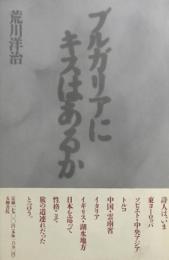 荒川洋治
ブルガリアに
キスはあるか
詩人は、いま
東ヨーロッパ
ソビエト・中央アジア
トルコ
中国・雲南省
イタリア
イギリス・湖水地方
日本を巡って
性格こそ
旅の道連れだった
と言おう。